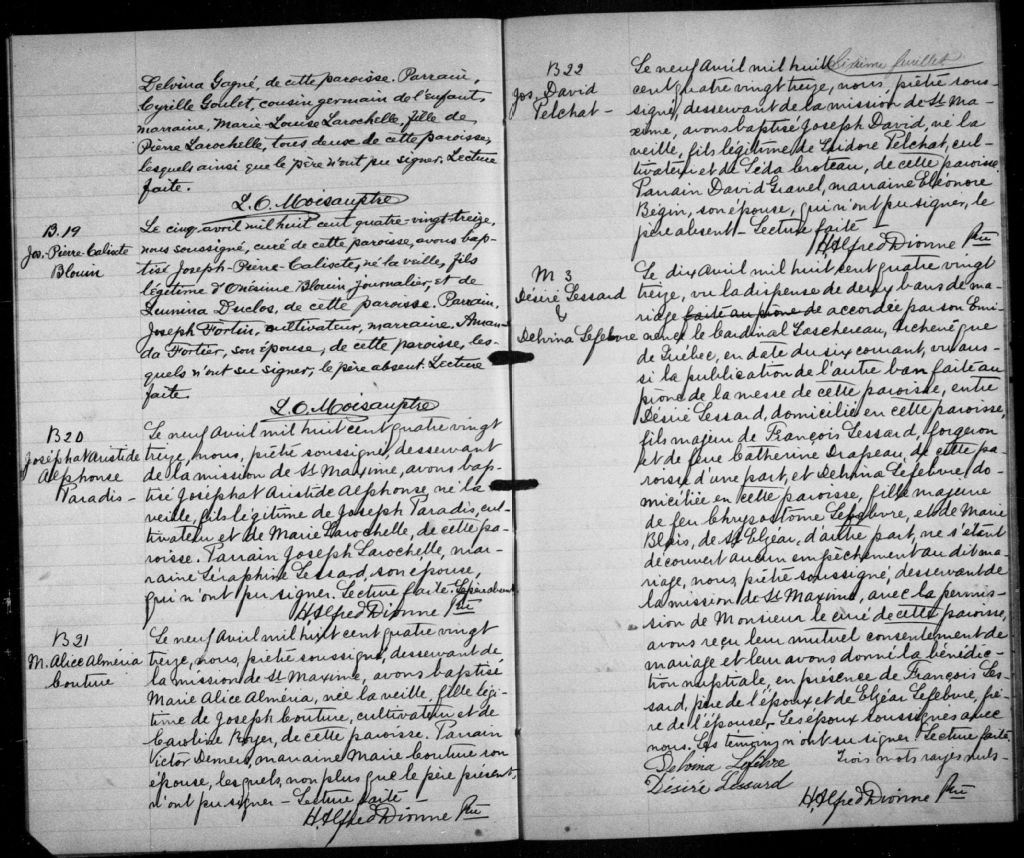 Delvina Gagné, de cette paroisse. Parrain,
Cyrille Goulet, cousin germain de l'enfant,
marraine, Marie-Louise Larochelle, fille de
Pierre Larochelle, tous deux de cette paroisse,
lesquels ainsi que le père n'ont pu signer. Lecture
faite.
B.19
Jos.-Pierre-Calixte
Blouin
Le cinq avril mil huit cent quatre-vingt-treize,
nous soussigné, curé de cette paroisse, avons bap-
tisé Joseph-Pierre-Calixte, né la veille, fils
légitime d'Onésime Blouin, journalier, et de
Duclos, de cette paroisse. Parrain,
Joseph Fortin, cultivateur, marraine, Aman-
da Fortier, son épouse, de cette paroisse, les-
quels n'ont su signer, le père absent. Lecture
faite.
B20
Joséphat Aristide
Alphonse
Paradis -
Le neuf Avril mil huit cent quatre vingt
treize, nous, piêtré soussigné, desservant
de la mission de St Maxime, avons bap-
tisé Joséphat Aristide Alphonse, né la
veille, fils légitime de Joseph Paradis, cul-
tivateur et de Marie Larochelle, de cette pa-
roisse. Parrain Joseph Larochelle, mar-
raine Séraphine Lessard, son épouse,
qui n'ont pu signer. Lecture faite. Le père absent
H. Alfred Dionne Ptre
B21
M. Alice Alméria
Couture
Le neuf Avril mil huit cent quatre vingt
treize, nous, piêtré soussigné, desservant de
la mission de St Maxime, avons baptisé
Marie Alice Alméria, née la veille, fille légi-
time de Joseph Couture, cultivateur et de
Caroline Royer, de cette paroisse. Parrain
Victor Demers, marraine Marie Couture son
épouse, lesquels, non plus que le père présent,
n'ont pu signer - Lecture faite
H. Alfred Dionne Ptre
feuillet
B22
Jos. David
Pelchat -
Le neuf Avril mil huit
cent quatre vingt treize, nous, piêtré sous-
signé, desservant de la mission de St Ma-
xime, avons baptisé Joseph David, né la
veille, fils légitime de Isidore Pelchat, cul-
tivateur et de Léda Croteau, de cette paroisse
Parrain David Gravel, marraine Eléonore
Bégin, son épouse, qui n'ont pu signer, le
père absent - Lecture faite
H. Alfred Dionne Ptre
M 3
Désiré Lessard
&
Delvina Lefebvre
Le dix Avril mil huit cent quatre vingt
treize, vu la dispense de deux bans de ma-
riage faite au prone de accordée par son Emi-
nence le Cardinal Taschereau, Archevêque
de Québec, en date du six courant, vu aus-
si la publication de l'autre ban faite au
prone de la messe de cette paroisse, entre
Désiré Lessard, domicilié en cette paroisse,
fils majeur de François Lessard, forgeron
et de feue Catherine Drapeau, de cette pa-
roisse d'une part, et Delvina Lefebvre, do-
miciliée en cette paroisse, fille majeure
de feu Chrysostôme Lefebvre, et de Marie
Blais, de St Elzéar, d'autre part, ne s'étant
découvert aucun empêchement au dit ma-
riage, nous, piêtré soussigné, desservant de
la mission de St Maxime, avec la permis-
sion de Monsieur le curé de cette paroisse,
avons reçu leur mutuel consentement de
mariage et leur avons donné la bénédic-
tion nuptiale, en présence de François Les-
sard, père de l'époux et de Elzéar Lefebvre, frè-
re de l'épouse. Les époux soussignés avec
nous. Les témoins n'ont su signer. Lecture faite
Trois mots rayés nuls -
Delvina Lefebvre
Désiré Lessard
H. Alfred Dionne Ptre